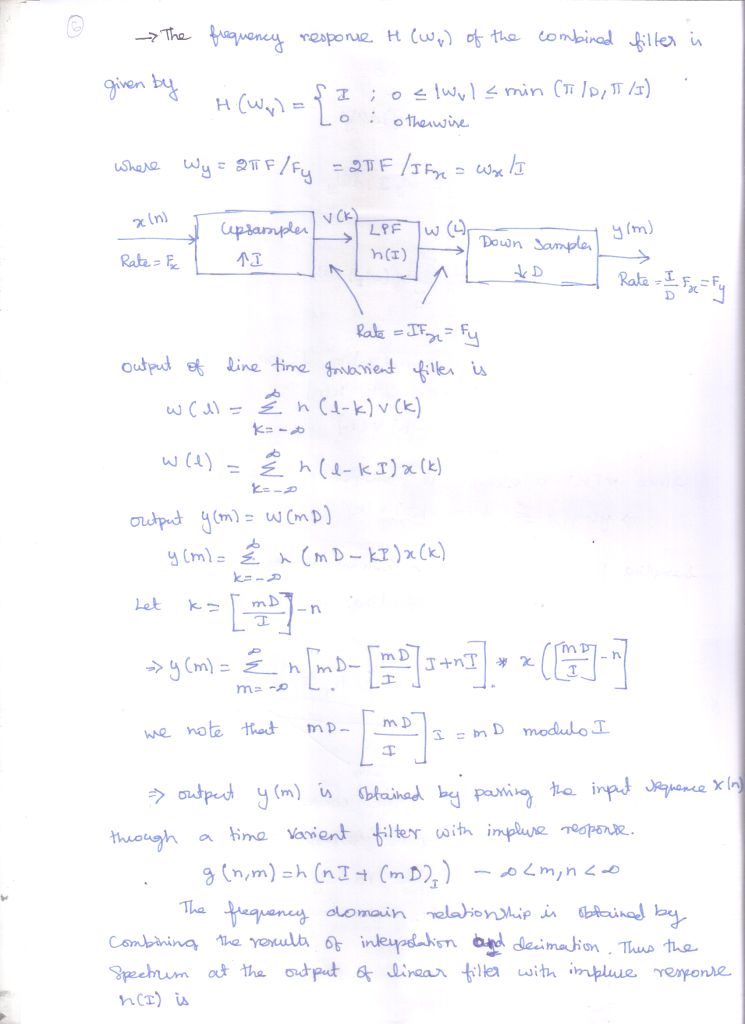 6
→ The frequency response H (Wv) of the combined filter is
given by
H (Wv) = { I ; 0 ≤ |Wv| ≤ min (π/D, π/I)
0 : otherwise
where Wy = 2πF/Fy = 2πF/IFx = Wx/I
x(n) Upsampler ↑I v(k) LPF h(I) w(L) Down Sampler ↓D y(m)
Rate = Fx
Rate = I/D Fx = Fy
Rate = IFx = Fy
output of line time Invarient filter is
w(l) = Σ h(l-k) v(k)
k=-∞ ∞
w(l) = Σ h(l-kI) x(k)
k=-∞ ∞
output y(m) = w(mD)
y(m) = Σ h (mD-kI) x(k)
k=-∞ ∞
Let k = [mD/I] - n
⇒ y(m) = Σ h [mD - [mD/I] I + nI] * x ([mD/I] - n]
m=-∞ ∞
we note that mD - [mD/I] I = mD modulo I
⇒ output y(m) is obtained by passing the input sequence x(n)
through a time varient filter with implure response.
g(n,m) = h (nI + (mD)I) -∞ < m,n < ∞
The frequency domain relationship is obtained by
Combining the results of interpolation and decimation. Thus the
Spectrum at the output of linear filter with implure response
h(I) is